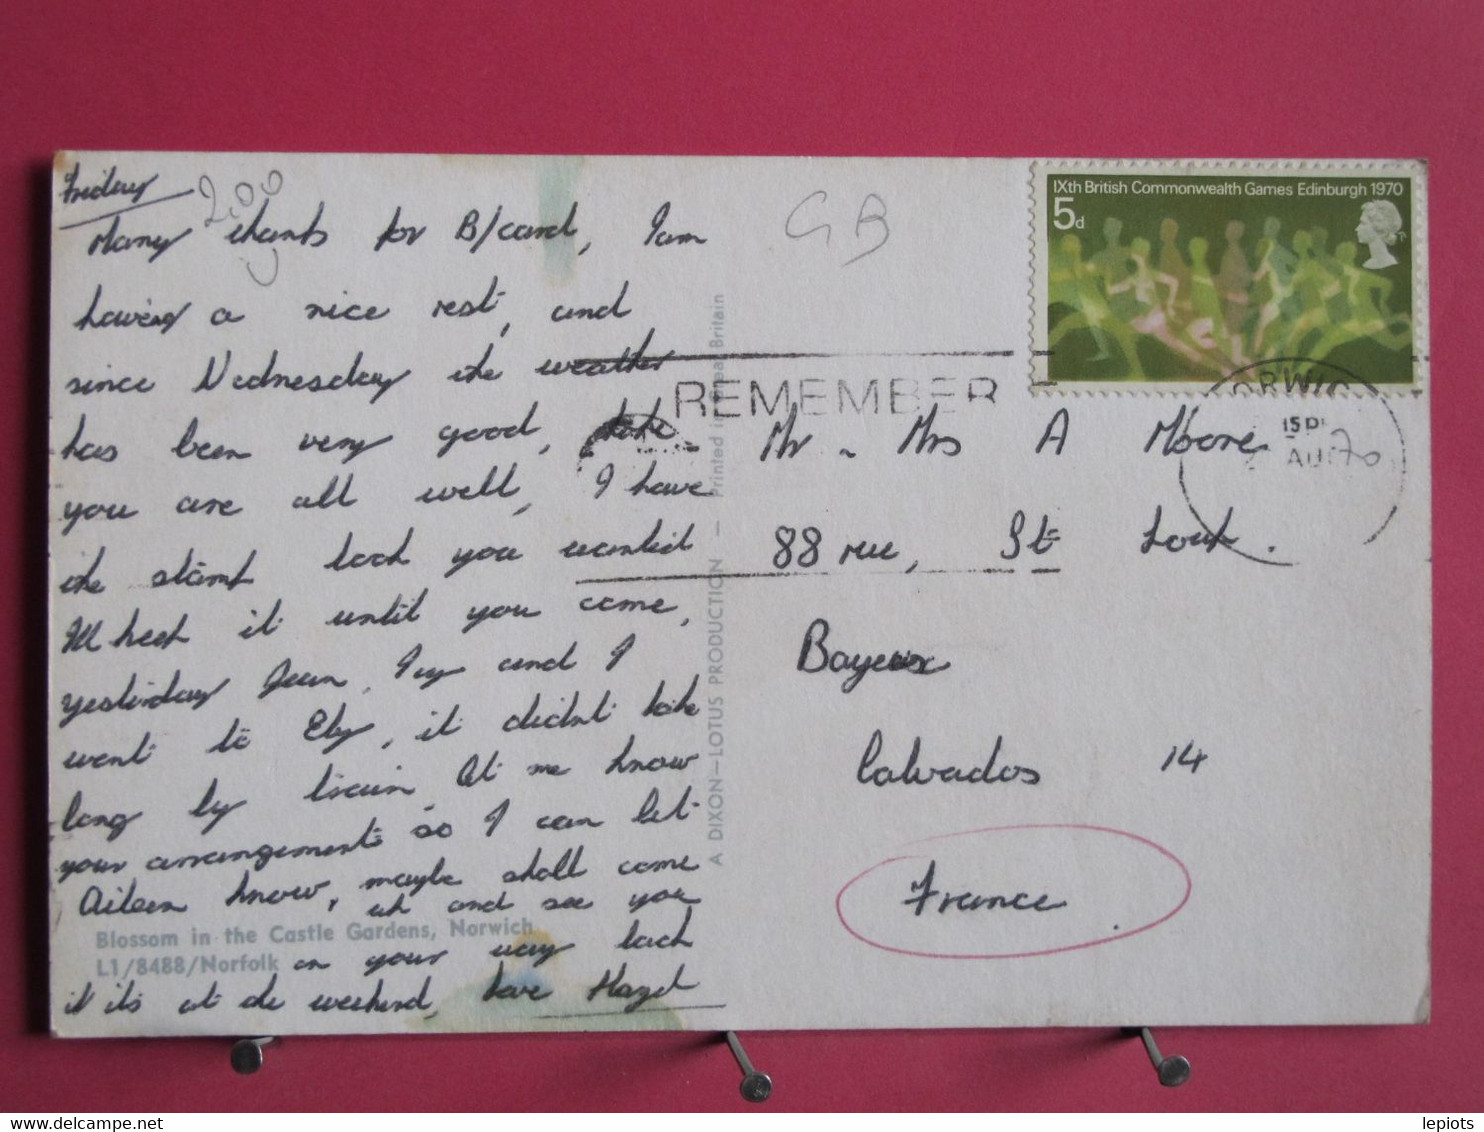 Friday
2,00
Many thanks for B/card, I am
having a nice rest, and
since Wednesday the weather
has been very good, hope
you are all well, I have
the stamp book you wanted
I'll keep it until you come,
yesterday Jean, Ivy and I
went to Ely, it didn't take
long by train. Let me know
your arrangements so I can let
Aileen know, maybe shall come
up and see you
on your way back
if it's at the weekend, love Hazel
Blossom in the Castle Gardens, Norwich
L1/8488/Norfolk
A DIXON-LOTUS PRODUCTION — Printed in Great Britain
GB
IXth British Commonwealth Games Edinburgh 1970
5d
REMEMBER
NORWICH
AU 1970
Mr - Mrs A Moore
88 rue, St Loup.
Bayeux
Calvados 14
France
lepiots